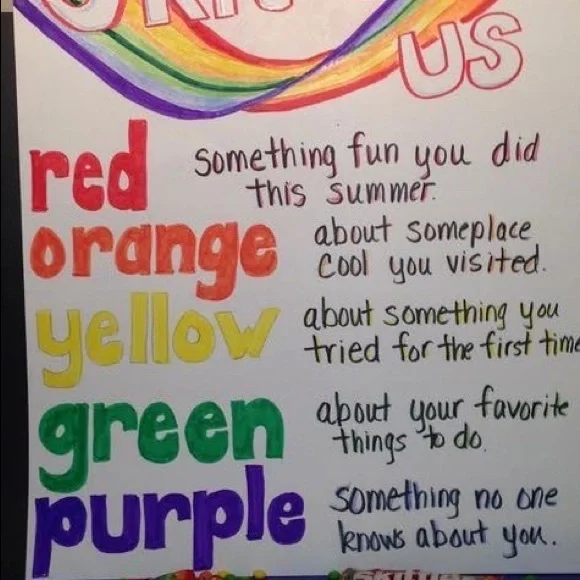 US
red something fun you did
this summer.
orange about someplace
cool you visited.
yellow about something you
tried for the first time
green about your favorite
things to do.
purple something no one
knows about you.